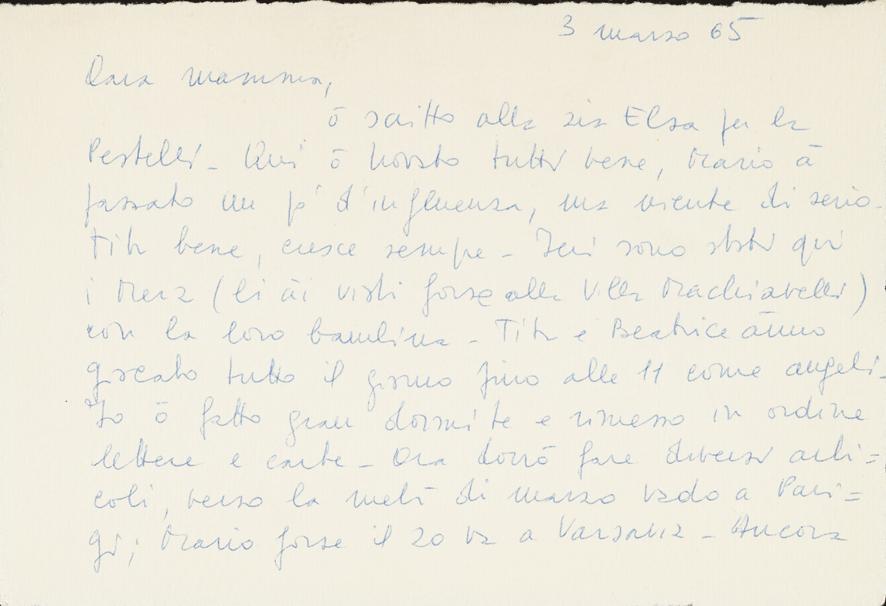 3 marzo 65
Cara mamma,
ō scritto alla zia Elsa per la
Pestelli - Qui ō trovato tutti bene, Mario ā
passato un pò d'influenza, ma niente di serio.
Titti bene, cresce sempre - Ieri sono stati qui
i Merz (li āi visti forse alla Villa Machiavelli)
con la loro bambina - Titti e Beatrice ānno
giocato tutto il giorno fino alle 11 come angeli -
Io ō fatto gran dormite e rimesso in ordine
lettere e carte - Ora dovrō fare diversi arti=
coli, verso la metà di marzo vado a Pari=
gi; Mario forse il 20 va a Varsavia - Ancora